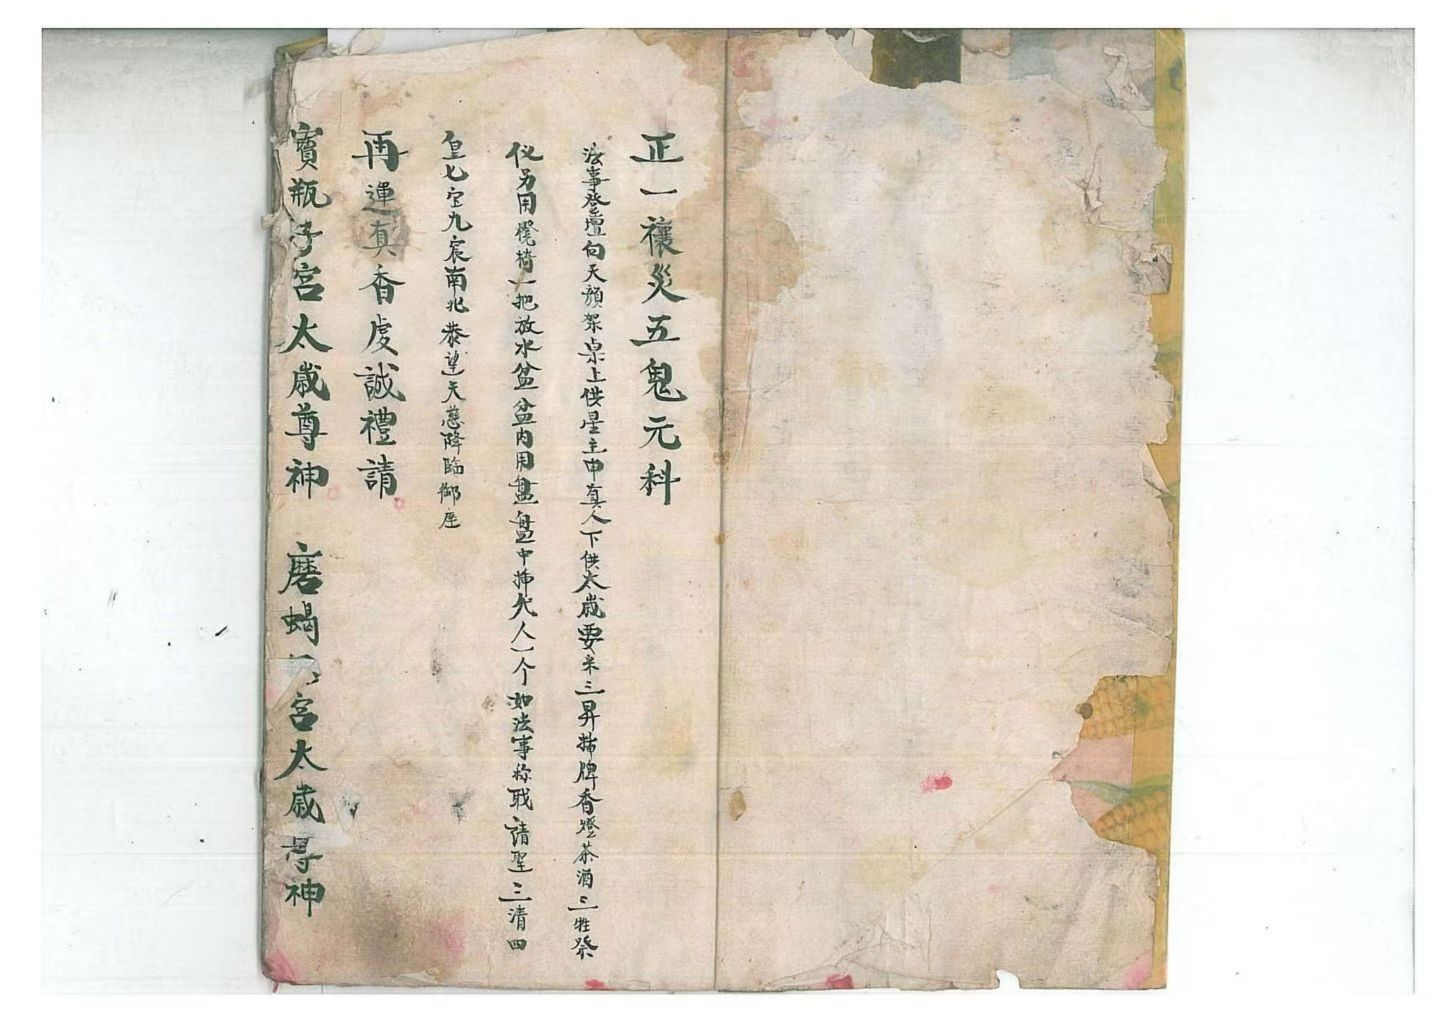 正一禳災五鬼元科
法事登壇向天顏架桌上供星主中真人下供太歲要米三昇插牌香燈茶酒三牲祭
仪另用櫈椅一把放水盆盆内用盘盘中插代人一个如法事称职請聖三清四
皇七宝九宸南北恭望天慈降臨御座
再運真香虔誠禮請
寶瓶子宮太歲尊神 磨蝎宮太歲尊神